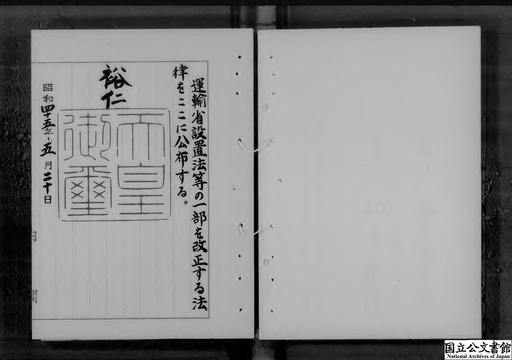 運輸省設置法等の一部を改正する法
律をここに公布する。
裕仁
天皇
御璽
昭和四十五年五月二十日
内閣
国立公文書館
National Archives of Japan